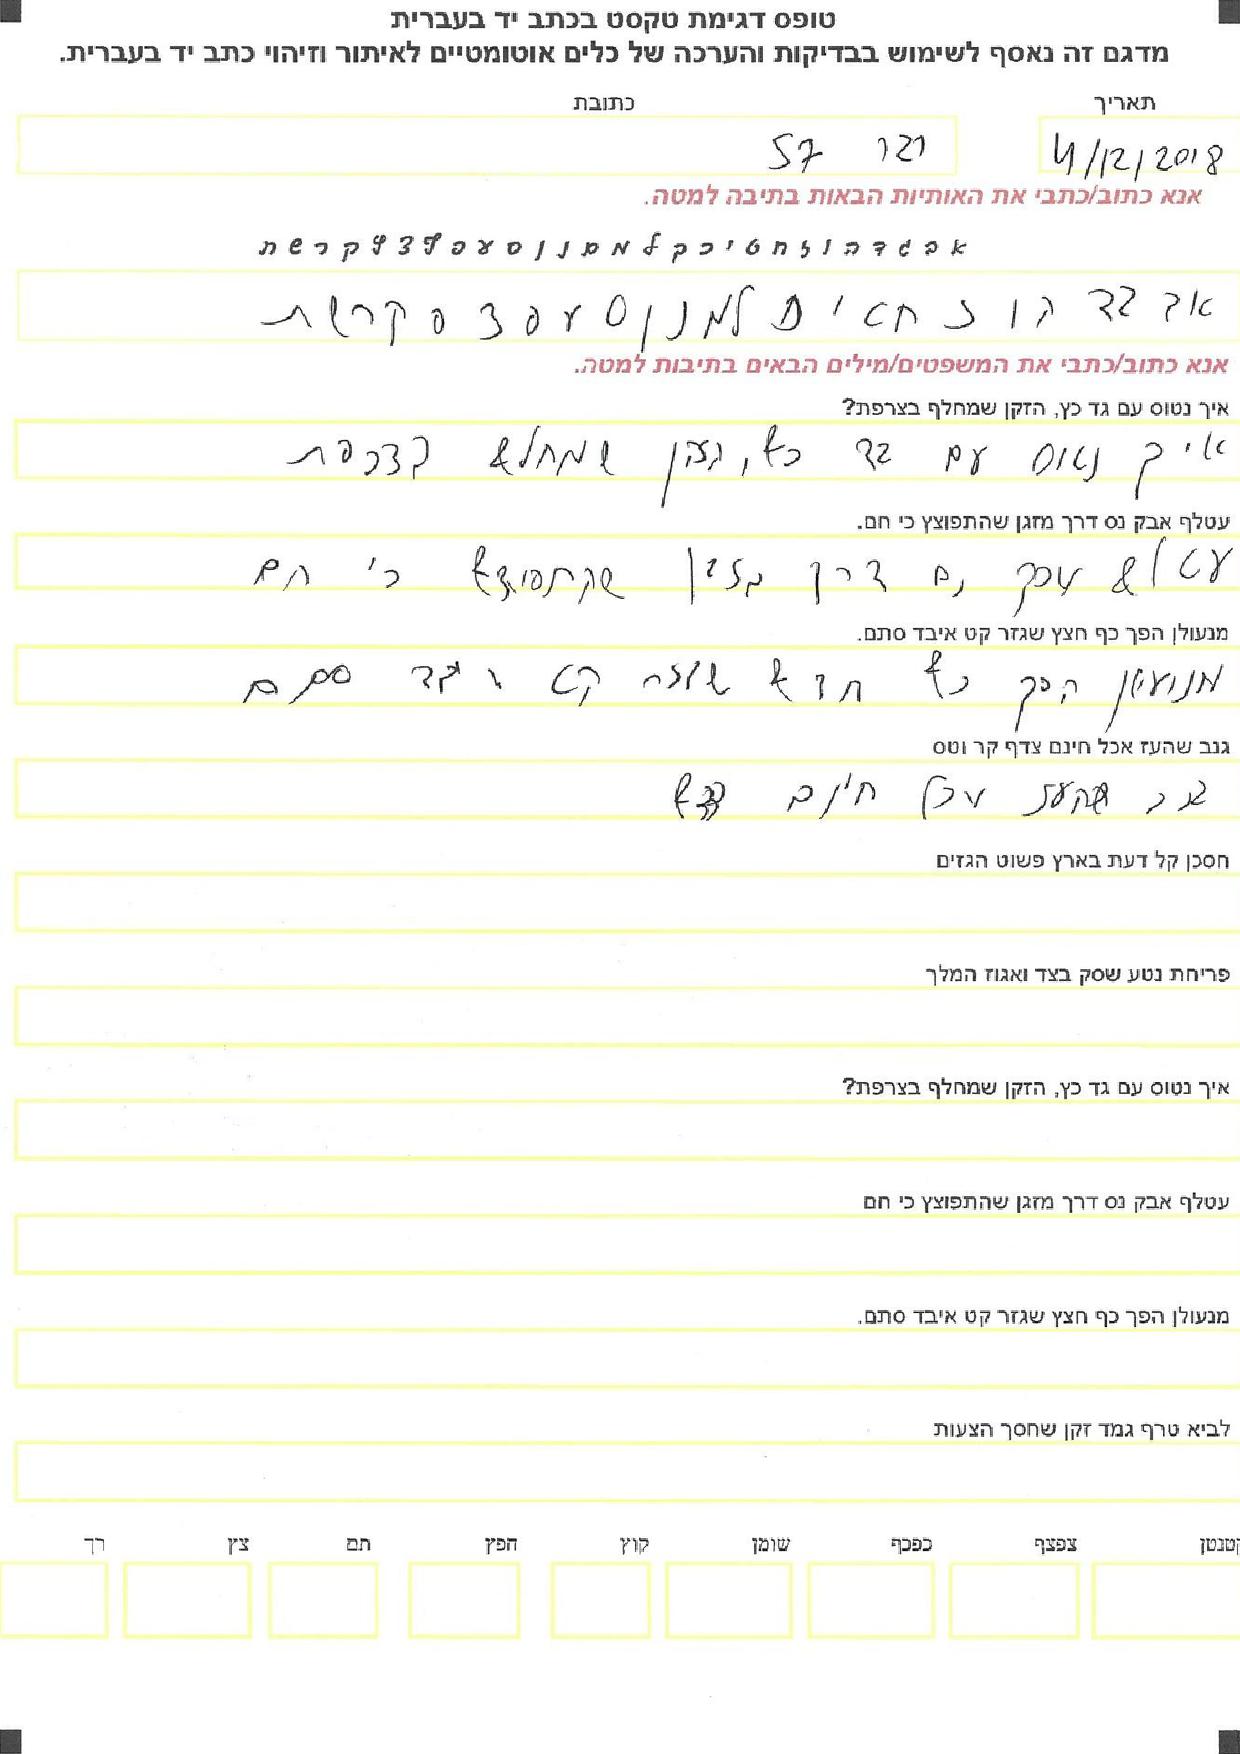 טופס דגימת טקסט בכתב יד בעברית
מדגם זה נאסף לשימוש בבדיקות והערכה של כלים אוטומטיים לאיתור וזיהוי כתב יד בעברית.
תאריך כתובת
4/12/2018 57
אנא כתוב/כתבי את האותיות הבאות בתיבה למטה.
א ב ג ד ה ו ז ח ט י כ ך ל מ ם נ ן ס ע פ ף צ ץ ק ר ש ת
אנא כתוב/כתבי את המשפטים/מילים הבאים בתיבות למטה.
איך נטוס עם גד כץ, הזקן שמחלף בצרפת?
איך נטוס עם גד כץ, הזקן שמחלף בצרפת
עטלף אבק נס דרך מזגן שהתפוצץ כי חם.
עטלף אבק נס דרך מזגן שהתפוצץ כי חם
מנעולן הפך כף חצץ שגזר קט איבד סתם.
הפך כף חצץ שגזר קט סתם
גנב שהעז אכל חינם צדף קר וטס
שהעז אכל חינם
חסכן קל דעת בארץ פשוט הגזים
פריחת נטע שסק בצד ואגוז המלך
איך נטוס עם גד כץ, הזקן שמחלף בצרפת?
עטלף אבק נס דרך מזגן שהתפוצץ כי חם
מנעולן הפך כף חצץ שגזר קט איבד סתם.
לביא טרף גמד זקן שחסך הצעות
קטנטן צפצף כפכף שומן קוץ חפץ תם צץ רך